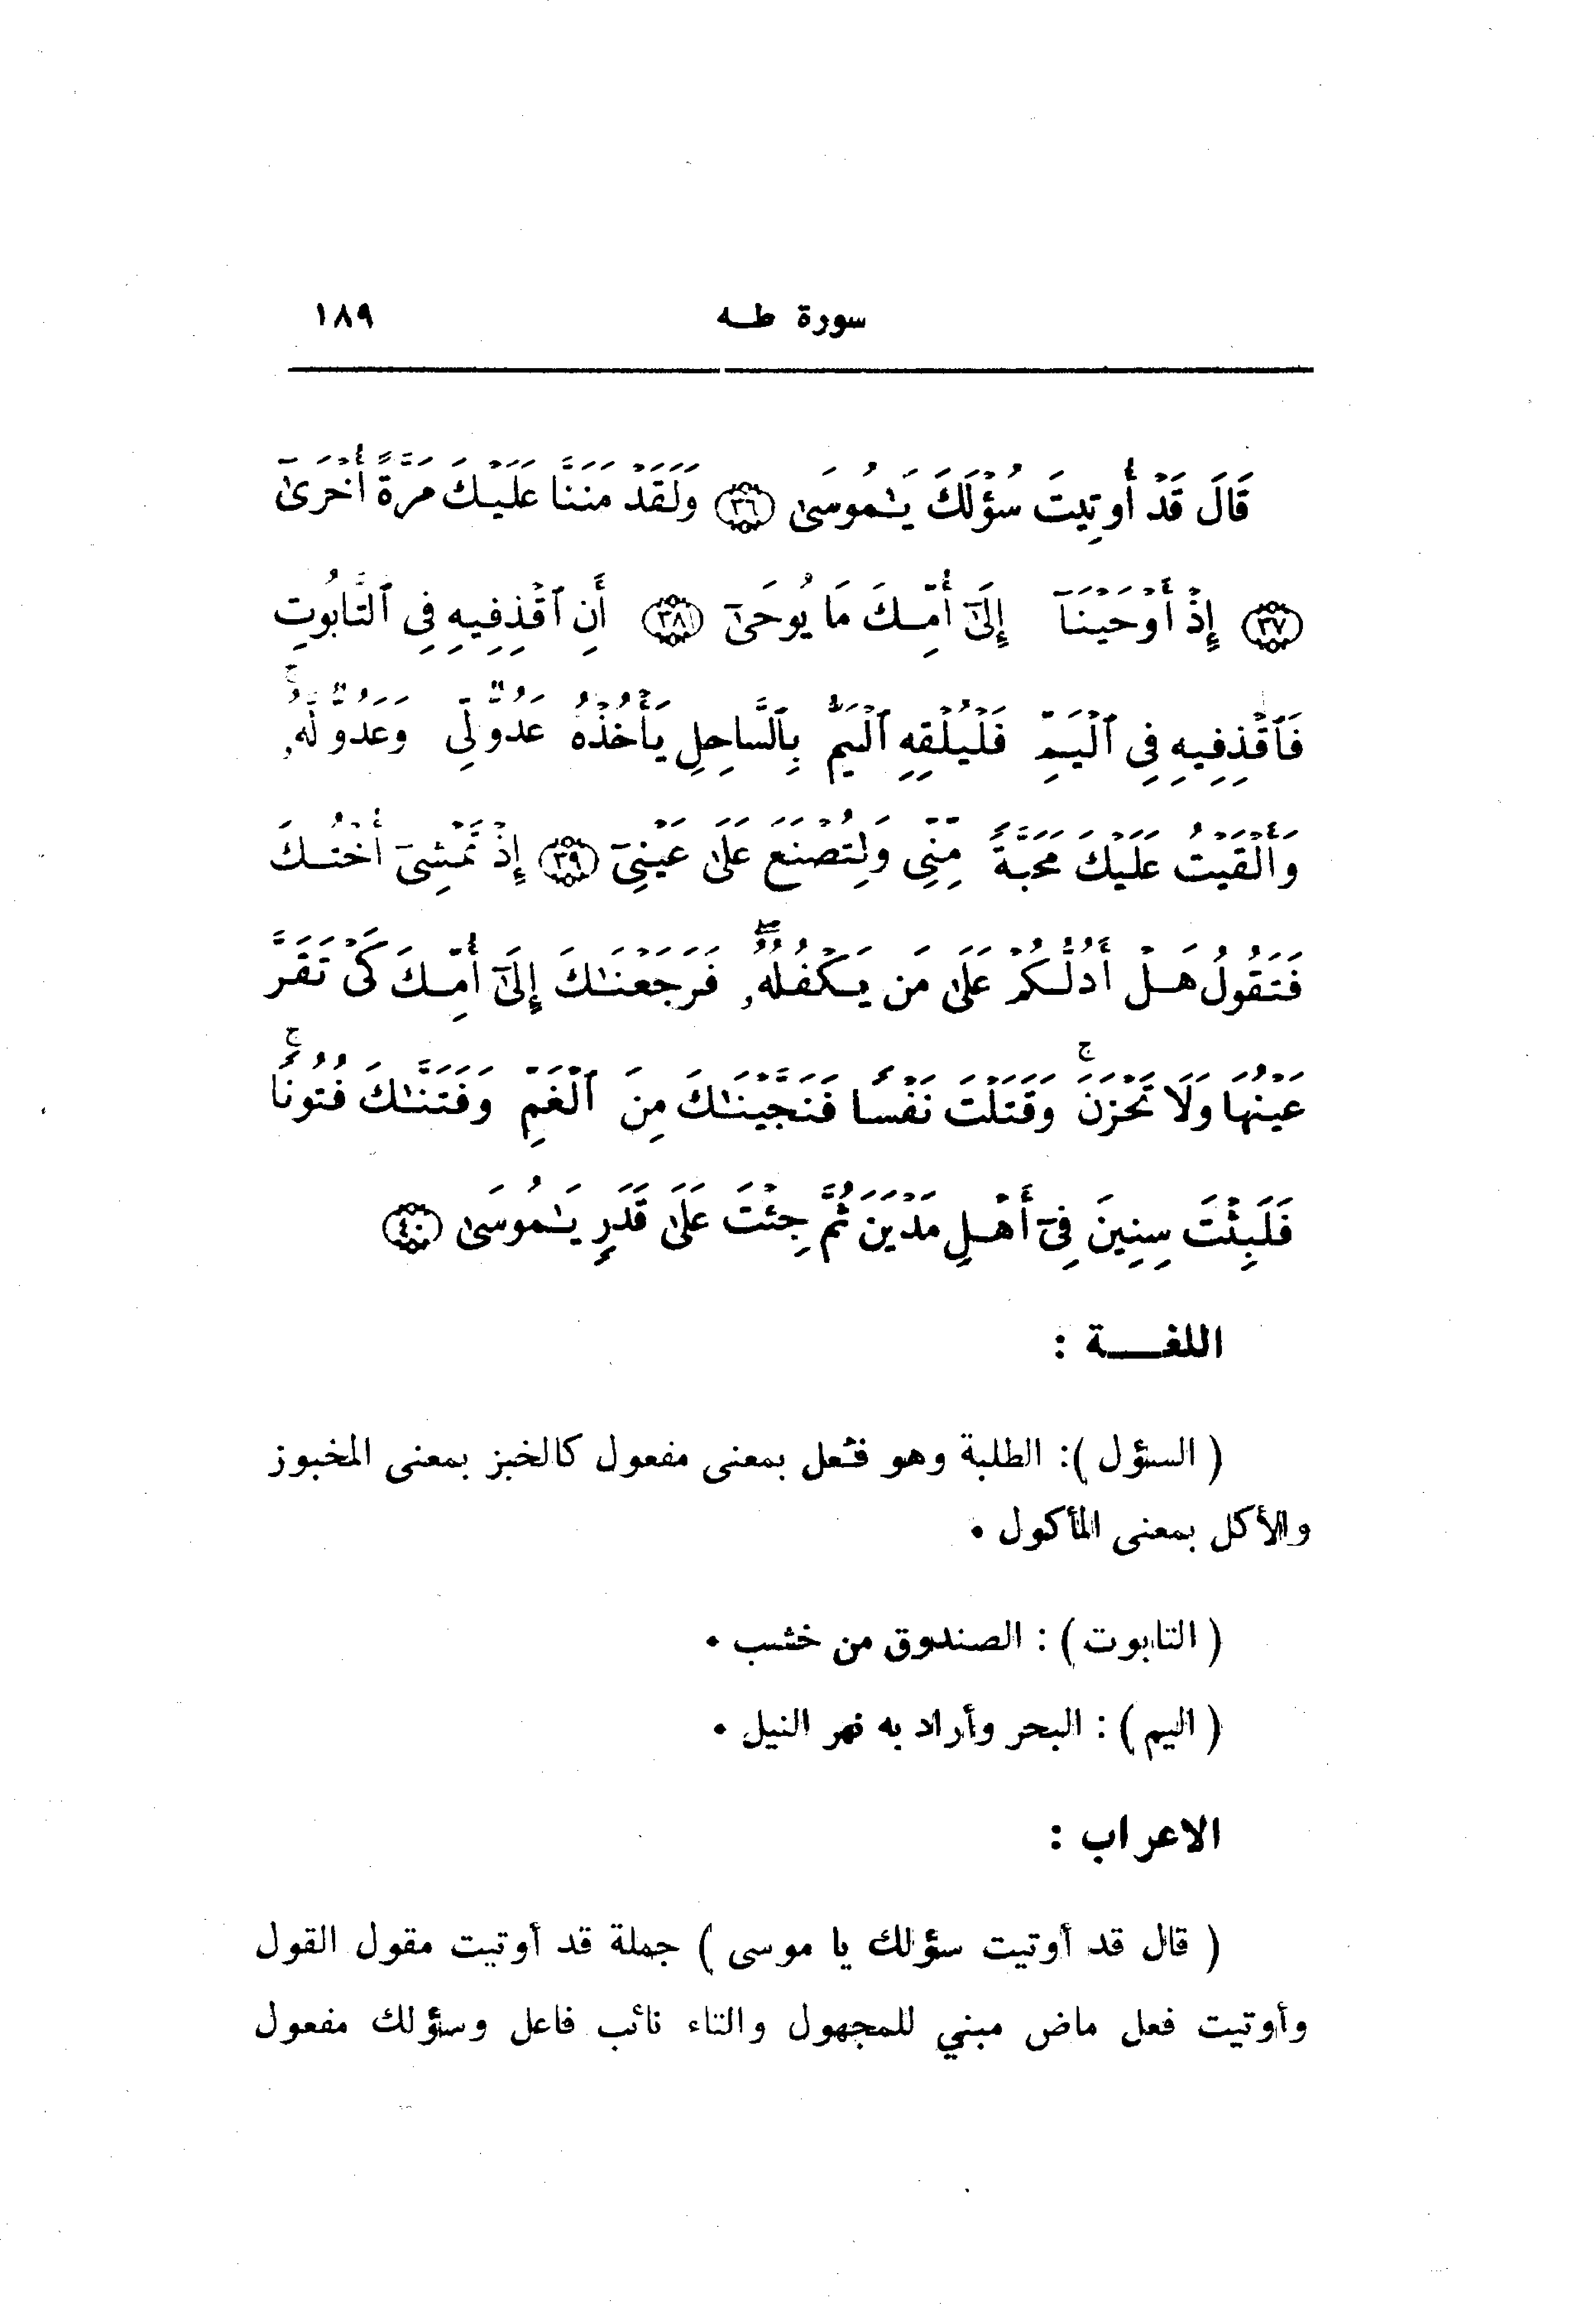 سورة طـه ١٨٩
قَالَ قَدْ أُوتِيتَ سُؤْلَكَ يَـٰمُوسَىٰ ﴿٣٦﴾ وَلَقَدْ مَنَنَّا عَلَيْكَ مَرَّةً أُخْرَىٰٓ
﴿٣٧﴾ إِذْ أَوْحَيْنَآ إِلَىٰٓ أُمِّـكَ مَا يُوحَىٰٓ ﴿٣٨﴾ أَنِ ٱقْذِفِيهِ فِى ٱلتَّابُوتِ
فَٱقْذِفِيهِ فِى ٱلْيَـمِّ فَلْيُلْقِهِ ٱلْيَمُّ بِٱلسَّاحِلِ يَأْخُذْهُ عَدُوٌّ لِّى وَعَدُوٌّ لَّهُۥۚ
وَأَلْقَيْتُ عَلَيْكَ مَحَبَّةً مِّنِّى وَلِتُصْنَعَ عَلَىٰ عَيْنِىٓ ﴿٣٩﴾ إِذْ تَمْشِىٓ أُخْتُـكَ
فَتَقُولُ هَـلْ أَدُلُّـكُمْ عَلَىٰ مَن يَـكْفُلُهُۥۖ فَرَجَعْنَـٰكَ إِلَىٰٓ أُمِّـكَ كَىْ تَقَرَّ
عَيْنُهَا وَلَا تَحْزَنَۚ وَقَتَلْتَ نَفْسًا فَنَجَّيْنَـٰكَ مِنَ ٱلْغَمِّ وَفَتَنَّـٰكَ فُتُونًاۚ
فَلَبِثْتَ سِنِينَ فِىٓ أَهْـلِ مَدْيَنَ ثُمَّ جِئْتَ عَلَىٰ قَدَرٍ يَـٰمُوسَىٰ ﴿٤٠﴾
اللغـــة :
( السؤل ): الطلبة وهو فُعل بمعنى مفعول كالخبز بمعنى المخبوز
والأكل بمعنى المأكول .
( التابوت ) : الصندوق من خشب .
( اليم ) : البحر وأراد به نهر النيل .
الاعراب :
( قال قد أوتيت سؤلك يا موسى ) جملة قد أوتيت مقول القول
وأوتيت فعل ماض مبني للمجهول والتاء نائب فاعل وسؤلك مفعول